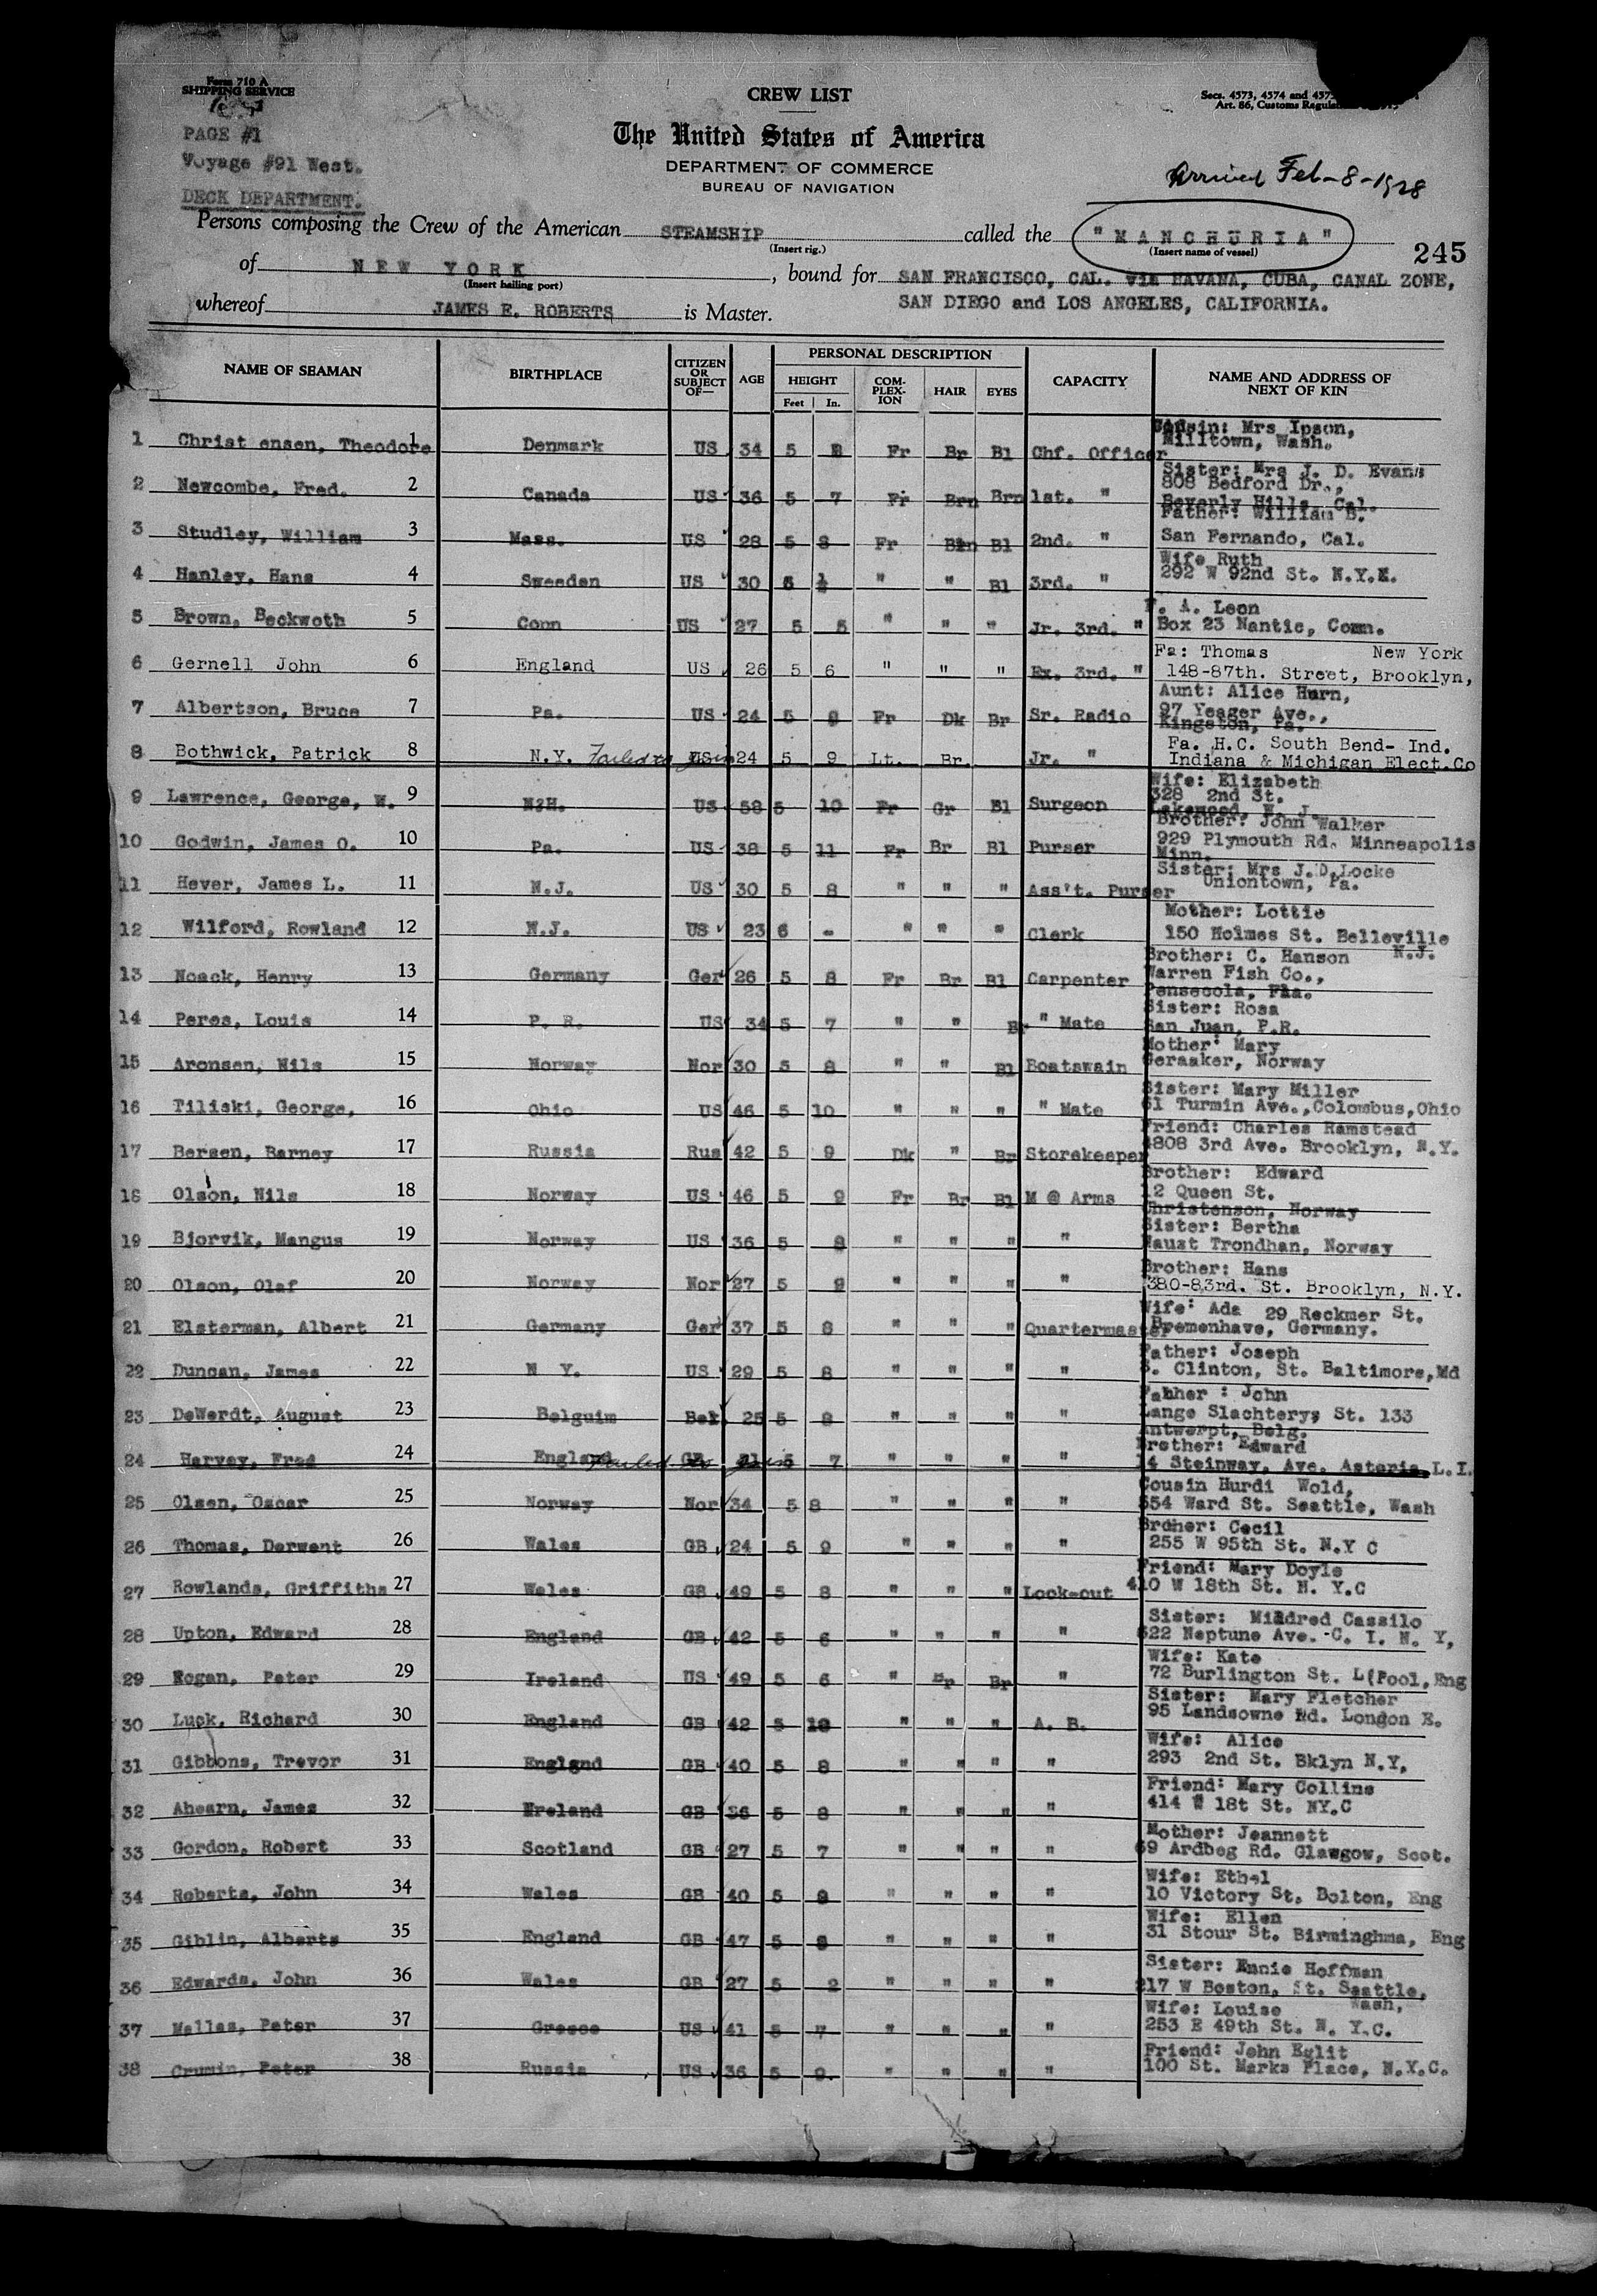 Form 710 A
SHIPPING SERVICE
CREW LIST
Secs. 4573, 4574 and
Art. 86, Customs
PAGE #1
The United States of America
Voyage #91 West.
DEPARTMENT OF COMMERCE
BUREAU OF NAVIGATION
Arrived Feb-8-1928
DECK DEPARTMENT.
Persons composing the Crew of the American STEAMSHIP called the "MANCHURIA"
(Insert rig.) (Insert name of vessel) 245
of NEW YORK, bound for SAN FRANCISCO, CAL. via HAVANA, CUBA, CANAL ZONE,
(Insert hailing port)
whereof JAMES E. ROBERTS is Master. SAN DIEGO and LOS ANGELES, CALIFORNIA.
NAME OF SEAMAN BIRTHPLACE CITIZEN OR SUBJECT OF— AGE PERSONAL DESCRIPTION HEIGHT Feet In. COM-PLEX-ION HAIR EYES CAPACITY NAME AND ADDRESS OF NEXT OF KIN
1 Christ ensen, Theodore 1 Denmark US 34 5 8 Fr Br Bl Chf. Officer Cousin: Mrs Ipson,
Milltown, Wash.
2 Newcombe, Fred. 2 Canada US 36 5 7 Fr Brn Brn 1st. " Sister: Mrs J. D. Evans
808 Bedford Dr.,
Beverly Hills, Cal.
3 Studley, William 3 Mass. US 28 5 8 Fr Brn Bl 2nd. " Father: William B.
San Fernando, Cal.
4 Hanley, Hans 4 Sweeden US 30 6 ½ " " Bl 3rd. " Wife Ruth
292 W 92nd St. N.Y.
5 Brown, Beckwoth 5 Conn US 27 5 5 " " " Jr. 3rd. " A. Leon
Box 23 Nantic, Conn.
6 Gernell John 6 England US 26 5 6 " " " Ex. 3rd. " Fa: Thomas New York
148-87th. Street, Brooklyn,
7 Albertson, Bruce 7 Pa. US 24 5 9 Fr Dk Br Sr. Radio Aunt: Alice Hurn,
97 Yeager Ave.,
Kingston, Pa.
8 Bothwick, Patrick 8 N.Y. Failed to join US 24 5 9 Lt. Br. Jr. " Fa. H.C. South Bend- Ind.
Indiana & Michigan Elect.Co
9 Lawrence, George, W. 9 N.H. US 58 5 10 Fr Gr Bl Surgeon Wife: Elizabeth
328 2nd St.
Lakewood, N. J.
10 Godwin, James O. 10 Pa. US 38 5 11 Fr Br Bl Purser Brother: John Walker
929 Plymouth Rd. Minneapolis
Minn.
11 Hever, James L. 11 N.J. US 30 5 8 " " " Ass't. Purser Sister: Mrs J.D.Locke
Uniontown, Pa.
12 Wilford, Rowland 12 N.J. US 23 6 - " " " Clerk Mother: Lottie
150 Holmes St. Belleville
N.J.
13 Noack, Henry 13 Germany Ger 26 5 8 Fr Br Bl Carpenter Brother: C. Hanson
Warren Fish Co.,
Pensecola, Fla.
14 Peres, Louis 14 P. R. US 34 5 7 " " Br " Mate Sister: Rosa
San Juan, P.R.
15 Aronsen, Nils 15 Norway Nor 30 5 8 " " Bl Boatswain Mother: Mary
Geraaker, Norway
16 Tiliski, George, 16 Ohio US 46 5 10 " " " " Mate Sister: Mary Miller
61 Turmin Ave.,Colombus,Ohio
17 Bersen, Barney 17 Russia Rus 42 5 9 Dk " Br Storekeeper Friend: Charles Ramstead
4808 3rd Ave. Brooklyn, N.Y.
18 Olson, Nils 18 Norway US 46 5 9 Fr Br Bl M @ Arms Brother: Edward
12 Queen St.
Christenson, Norway
19 Bjorvik, Mangus 19 Norway US 36 5 8 " " " " Sister: Bertha
Naust Trondhan, Norway
20 Olson, Olaf 20 Norway Nor 27 5 9 " " " " Brother: Hans
380-83rd. St. Brooklyn, N.Y.
21 Elsterman, Albert 21 Germany Ger 37 5 8 " " " Quartermaster Wife: Ada 29 Reckmer St.
Bremenhave, Germany.
22 Duncan, James 22 N Y. US 29 5 8 " " " " Father: Joseph
S. Clinton, St. Baltimore,Md
23 DeWerdt, August 23 Belguim Bel 25 5 8 " " " " Father : John
Lange Slachterys St. 133
Antwerpt, Belg.
24 Harvey, Fred 24 England Failed to join GB 21 5 7 " " " " Brother: Edward
14 Steinway, Ave. Astoria, L.I.
25 Olsen, Oscar 25 Norway Nor 34 5 8 " " " " Cousin Hurdi Wold,
654 Ward St. Seattle, Wash
26 Thomas, Derwent 26 Wales GB 24 5 9 " " " " Brother: Cecil
255 W 95th St. N.Y C
27 Rowlands, Griffiths 27 Wales GB 49 5 8 " " " Lock-out Friend: Mary Doyle
410 W 18th St. N. Y.C
28 Upton, Edward 28 England GB 42 5 6 " " " " Sister: Mildred Cassilo
622 Neptune Ave. C. I. N. Y,
29 Hogan, Peter 29 Ireland US 49 5 6 " Br Br " Wife: Kate
72 Burlington St. L(Pool,Eng
30 Luck, Richard 30 England GB 42 5 10 " " " A. B. Sister: Mary Fletcher
95 Landsowne Rd. London E.
31 Gibbons, Trevor 31 England GB 40 5 8 " " " " Wife: Alice
293 2nd St. Bklyn N.Y,
32 Ahearn, James 32 Ireland GB 36 5 8 " " " " Friend: Mary Collins
414 W 18t St. NY.C
33 Gordon, Robert 33 Scotland GB 27 5 7 " " " " Mother: Jeannett
69 Ardbeg Rd. Glawgow, Scot.
34 Roberts, John 34 Wales GB 40 5 8 " " " " Wife: Ethel
10 Victory St. Bolton, Eng
35 Giblin, Alberts 35 England GB 47 5 8 " " " " Wife: Ellen
31 Stour St. Birminghma, Eng
36 Edwards, John 36 Wales GB 27 5 2 " " " " Sister: Ennie Hoffman
217 W Boston, St. Seattle,
Wash,
37 Mellas, Peter 37 Greece US 41 5 7 " " " " Wife: Louise
253 E 49th St. N. Y.C.
38 Crumin, Peter 38 Russia US 36 5 9. " " " " Friend: John Eglit
100 St. Marks Place, N.Y.C.